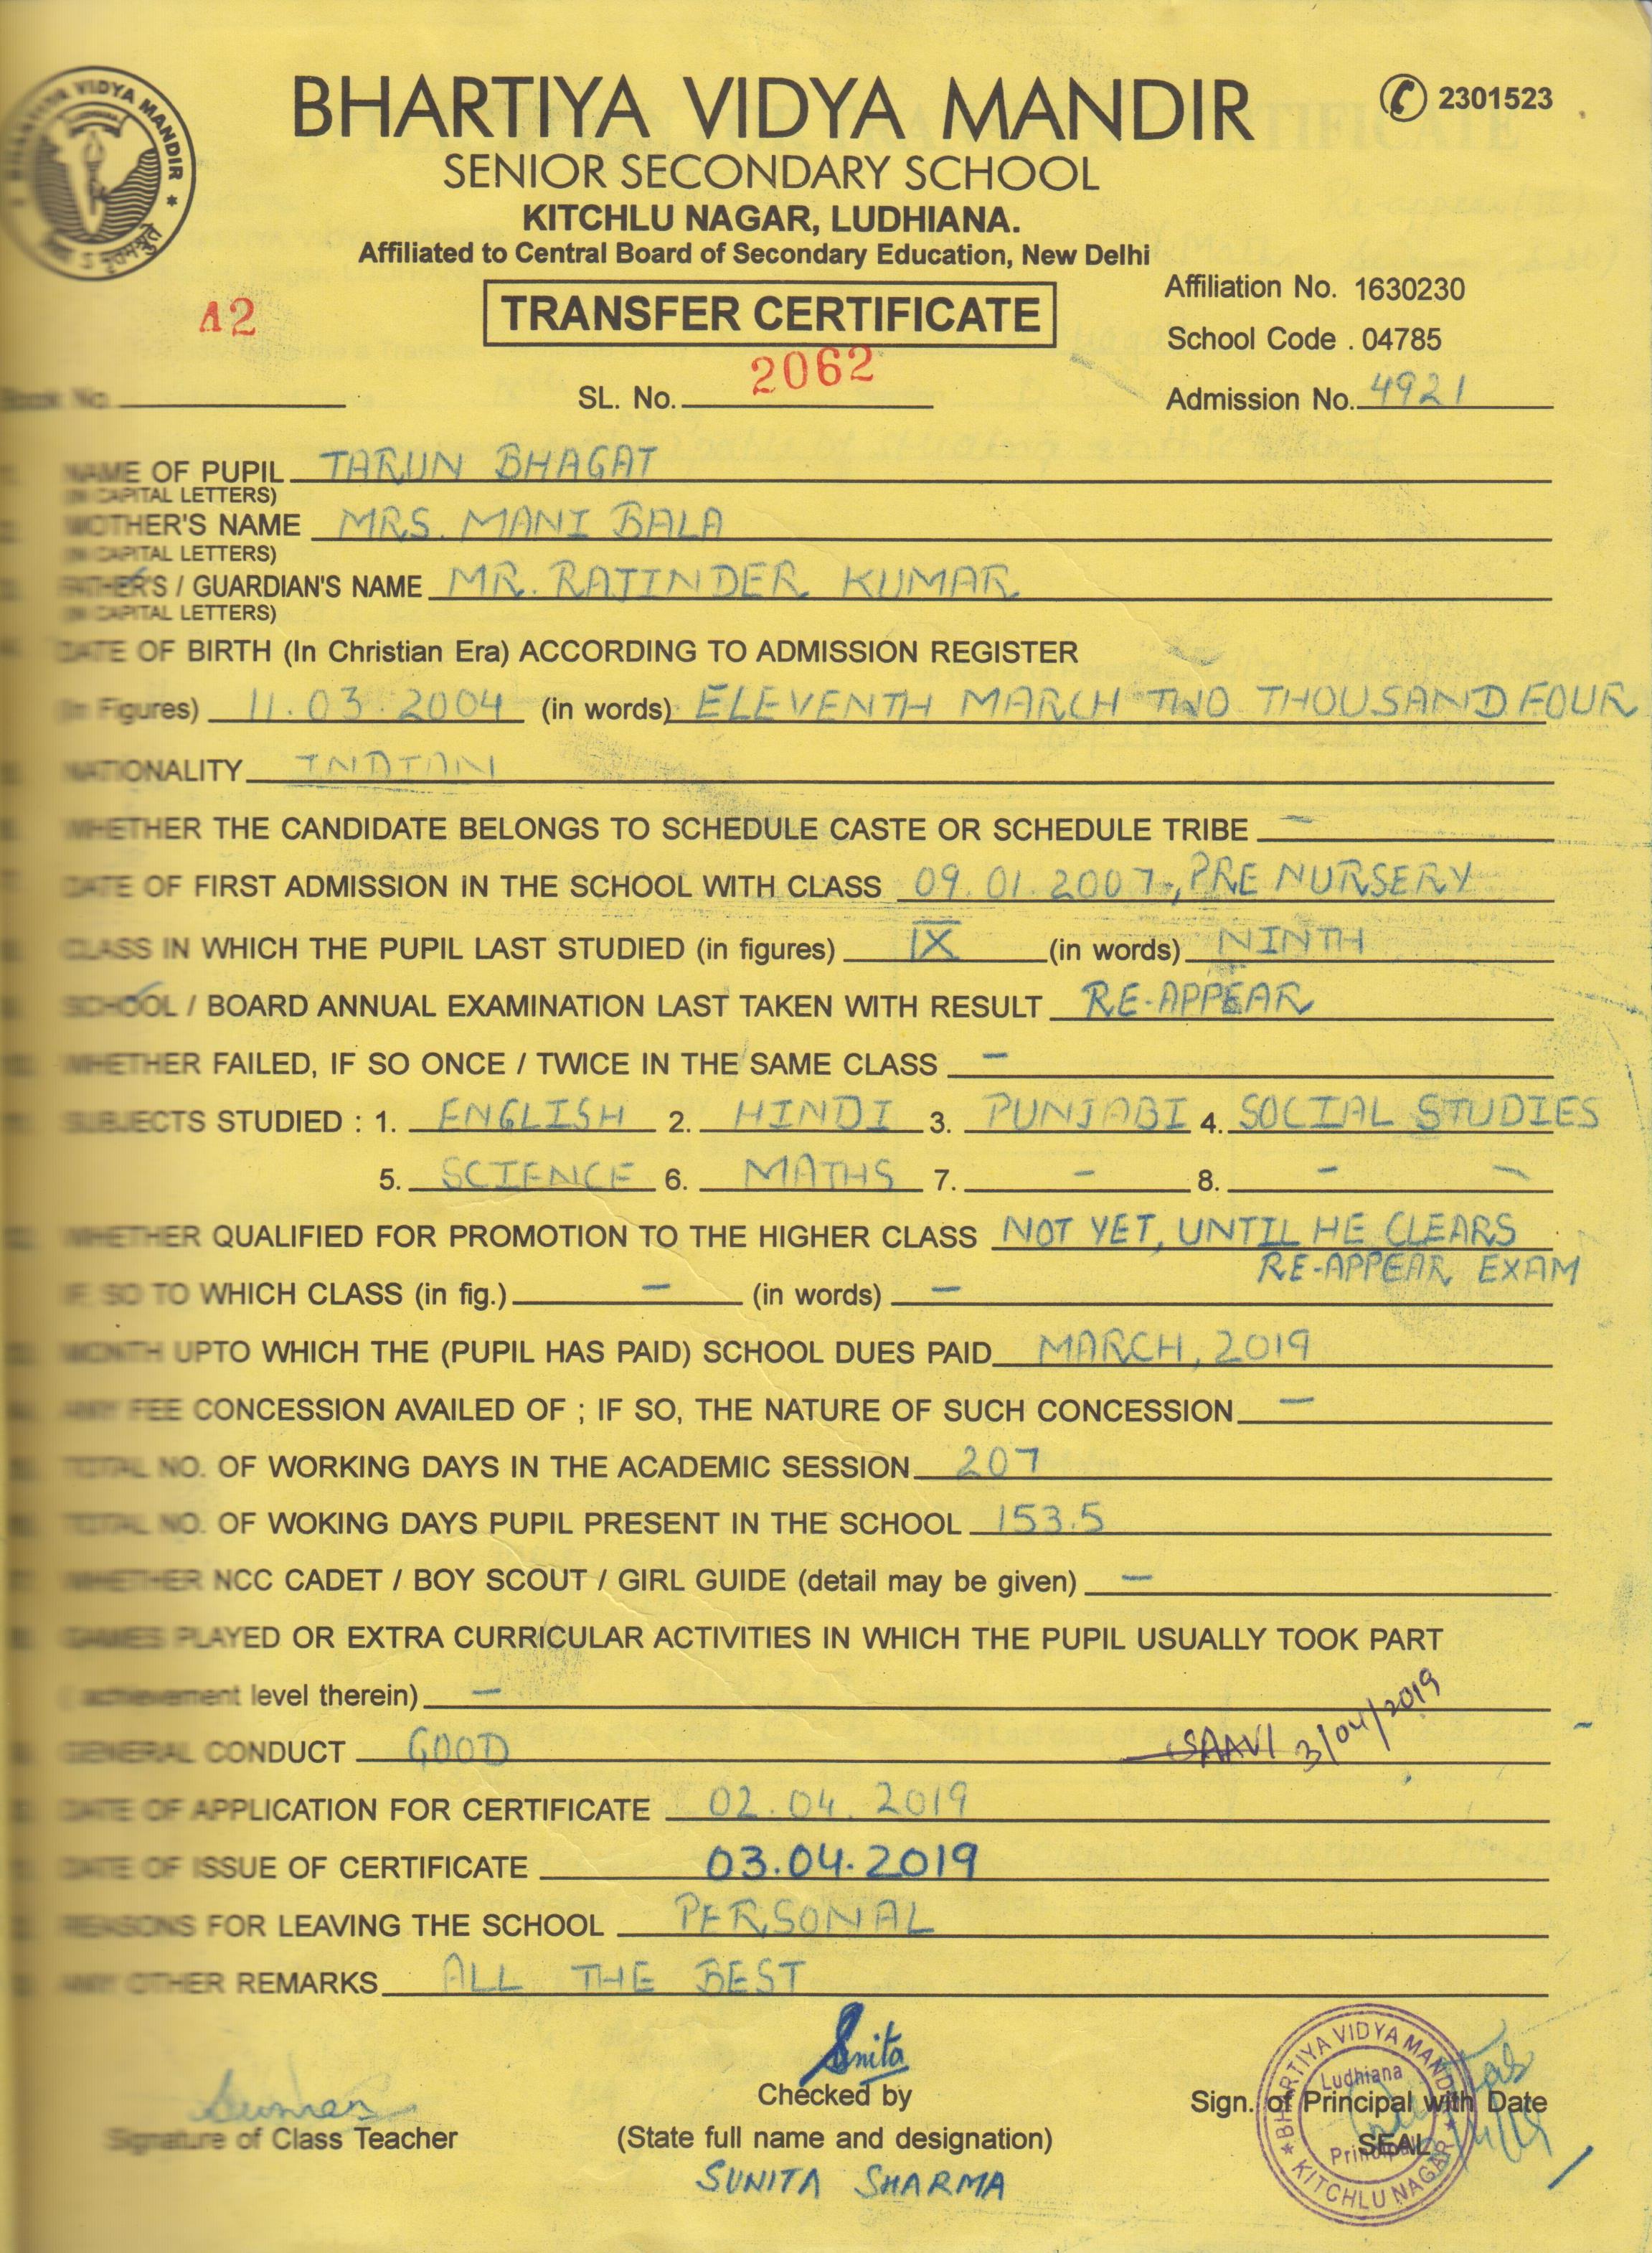 BHARTIYA VIDYA MANDIR
2301523
SENIOR SECONDARY SCHOOL
KITCHLU NAGAR, LUDHIANA.
Affiliated to Central Board of Secondary Education, New Delhi
TRANSFER CERTIFICATE
Affiliation No. 1630230
School Code . 04785
A2
Book No. SL. No. 2062 Admission No. 4921
NAME OF PUPIL TARUN BHAGAT
(IN CAPITAL LETTERS)
MOTHER'S NAME MRS. MANI BALA
(IN CAPITAL LETTERS)
FATHER'S / GUARDIAN'S NAME MR. RAJINDER KUMAR
(IN CAPITAL LETTERS)
DATE OF BIRTH (In Christian Era) ACCORDING TO ADMISSION REGISTER
(In Figures) 11.03.2004 (in words) ELEVENTH MARCH TWO THOUSAND FOUR
NATIONALITY INDIAN
WHETHER THE CANDIDATE BELONGS TO SCHEDULE CASTE OR SCHEDULE TRIBE –
DATE OF FIRST ADMISSION IN THE SCHOOL WITH CLASS 09.01.2007, PRE NURSERY
CLASS IN WHICH THE PUPIL LAST STUDIED (in figures) IX (in words) NINTH
SCHOOL / BOARD ANNUAL EXAMINATION LAST TAKEN WITH RESULT RE-APPEAR
WHETHER FAILED, IF SO ONCE / TWICE IN THE SAME CLASS –
SUBJECTS STUDIED : 1. ENGLISH 2. HINDI 3. PUNJABI 4. SOCIAL STUDIES
5. SCIENCE 6. MATHS 7. – 8. – –
WHETHER QUALIFIED FOR PROMOTION TO THE HIGHER CLASS NOT YET, UNTIL HE CLEARS
RE-APPEAR EXAM
IF SO TO WHICH CLASS (in fig.) – (in words) –
MONTH UPTO WHICH THE (PUPIL HAS PAID) SCHOOL DUES PAID MARCH, 2019
ANY FEE CONCESSION AVAILED OF ; IF SO, THE NATURE OF SUCH CONCESSION –
TOTAL NO. OF WORKING DAYS IN THE ACADEMIC SESSION 207
TOTAL NO. OF WOKING DAYS PUPIL PRESENT IN THE SCHOOL 153.5
WHETHER NCC CADET / BOY SCOUT / GIRL GUIDE (detail may be given) –
GAMES PLAYED OR EXTRA CURRICULAR ACTIVITIES IN WHICH THE PUPIL USUALLY TOOK PART
( achievement level therein) –
GENERAL CONDUCT GOOD SAAVI 3/04/2019
DATE OF APPLICATION FOR CERTIFICATE 02.04.2019
DATE OF ISSUE OF CERTIFICATE 03.04.2019
REASONS FOR LEAVING THE SCHOOL PERSONAL
ANY OTHER REMARKS ALL THE BEST
Suman Sunita
Signature of Class Teacher
Checked by
(State full name and designation)
SUNITA SHARMA
Sign. of Principal with Date
SEAL
BHARTIYA VIDYA MANDIR
Ludhiana
Principal
KITCHLU NAGAR